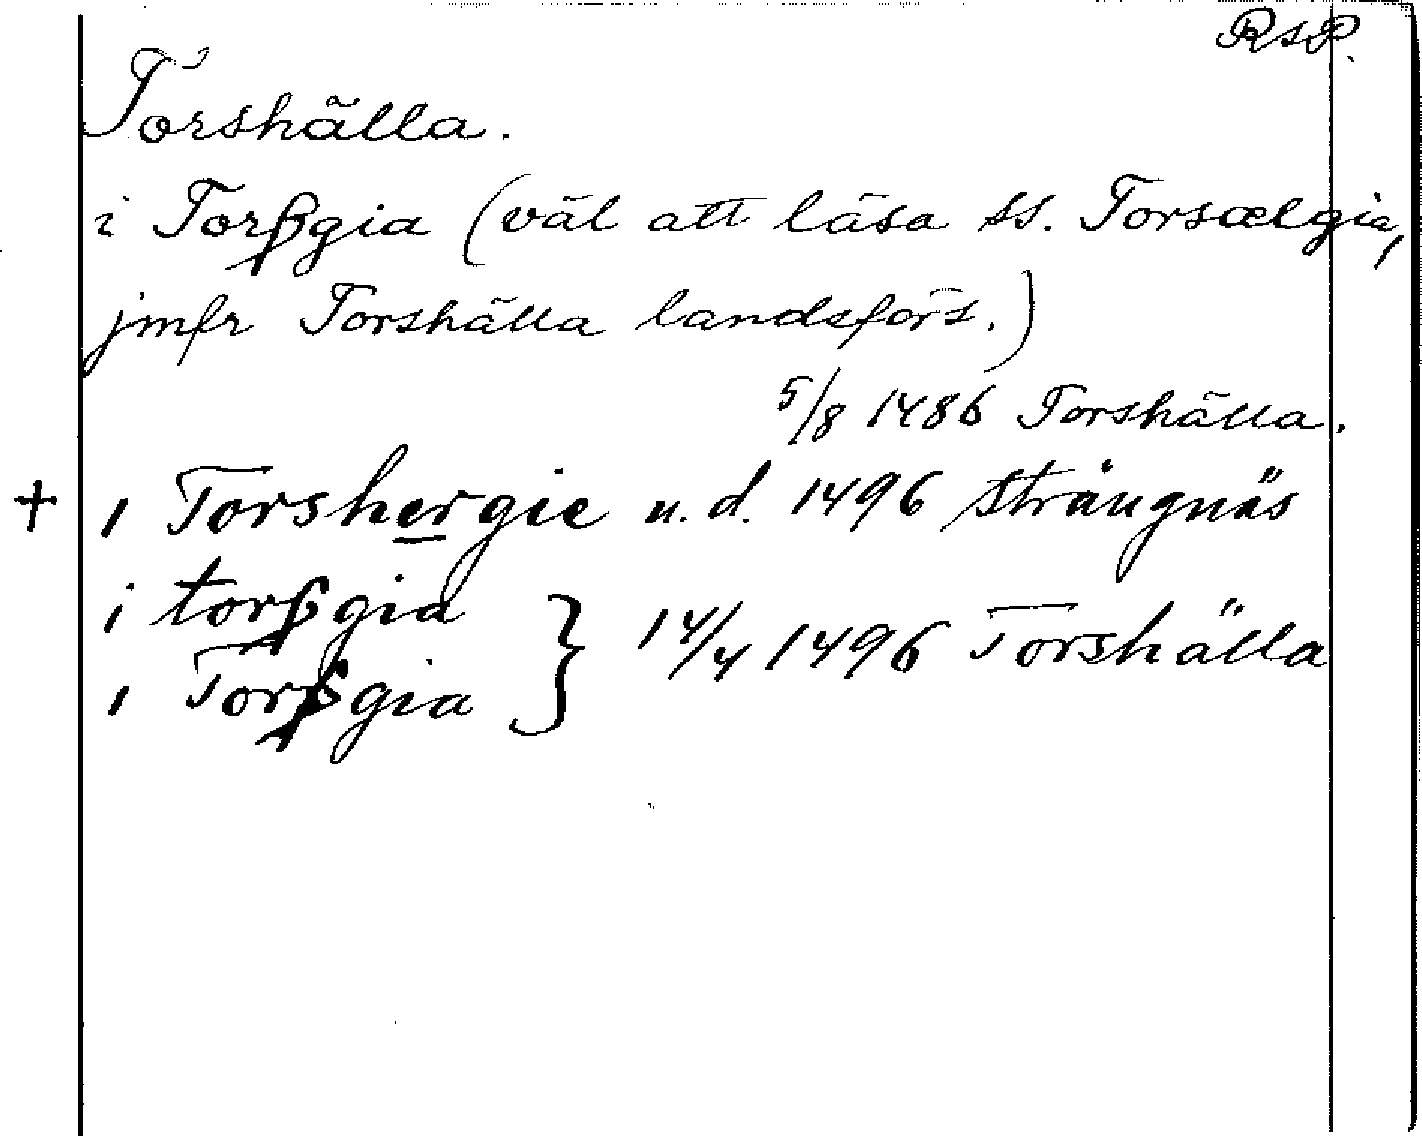 RSP.
Torshälla.
i Torꝭgia (väl att läsa ss. Torsælgia,
jmfr Torshälla landsförs.)
5/8 1486 Torshälla.
+ i Torshergie u. d. 1496 Strängnäs
i torꝭgia
i Torꝭgia } 14/4 1496 Torshälla